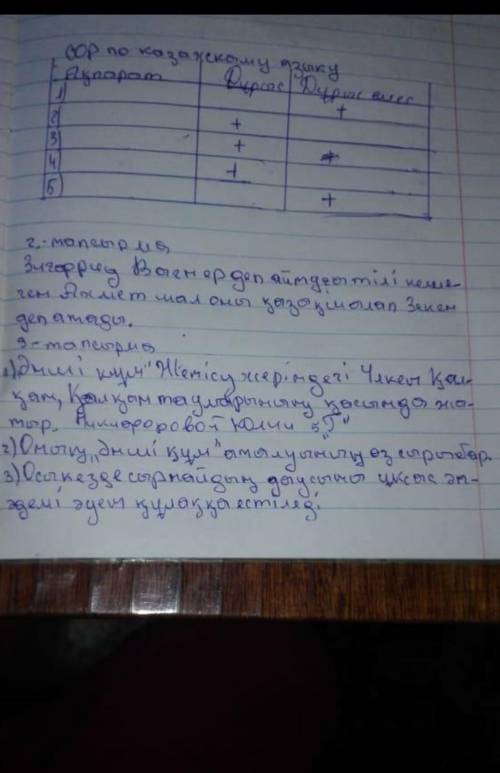 СОР по казахскому языку
Ақпарат Дұрыс Дұрыс емес
1) +
2 +
3 +
4 + +
5) +
2-тапсырма
Зигфрид Вагнер деп айтуға тілі келме-
ген Ахмет мал оны қазақшалап Зекен
деп атады.
3-тапсырма
1) Әнші құм "Жетісу жеріндегі Үлкен Қал-
қан, Қалқан тауларының қасында жа-
тыр. Никифоровой Юлии 5 "Г"
2) Оның "Әнші құм" аталуының өз сыры бар.
3) Осы кезде сырнайдың даусына ұқсас әп-
әдемі әуен құлаққа естіледі.